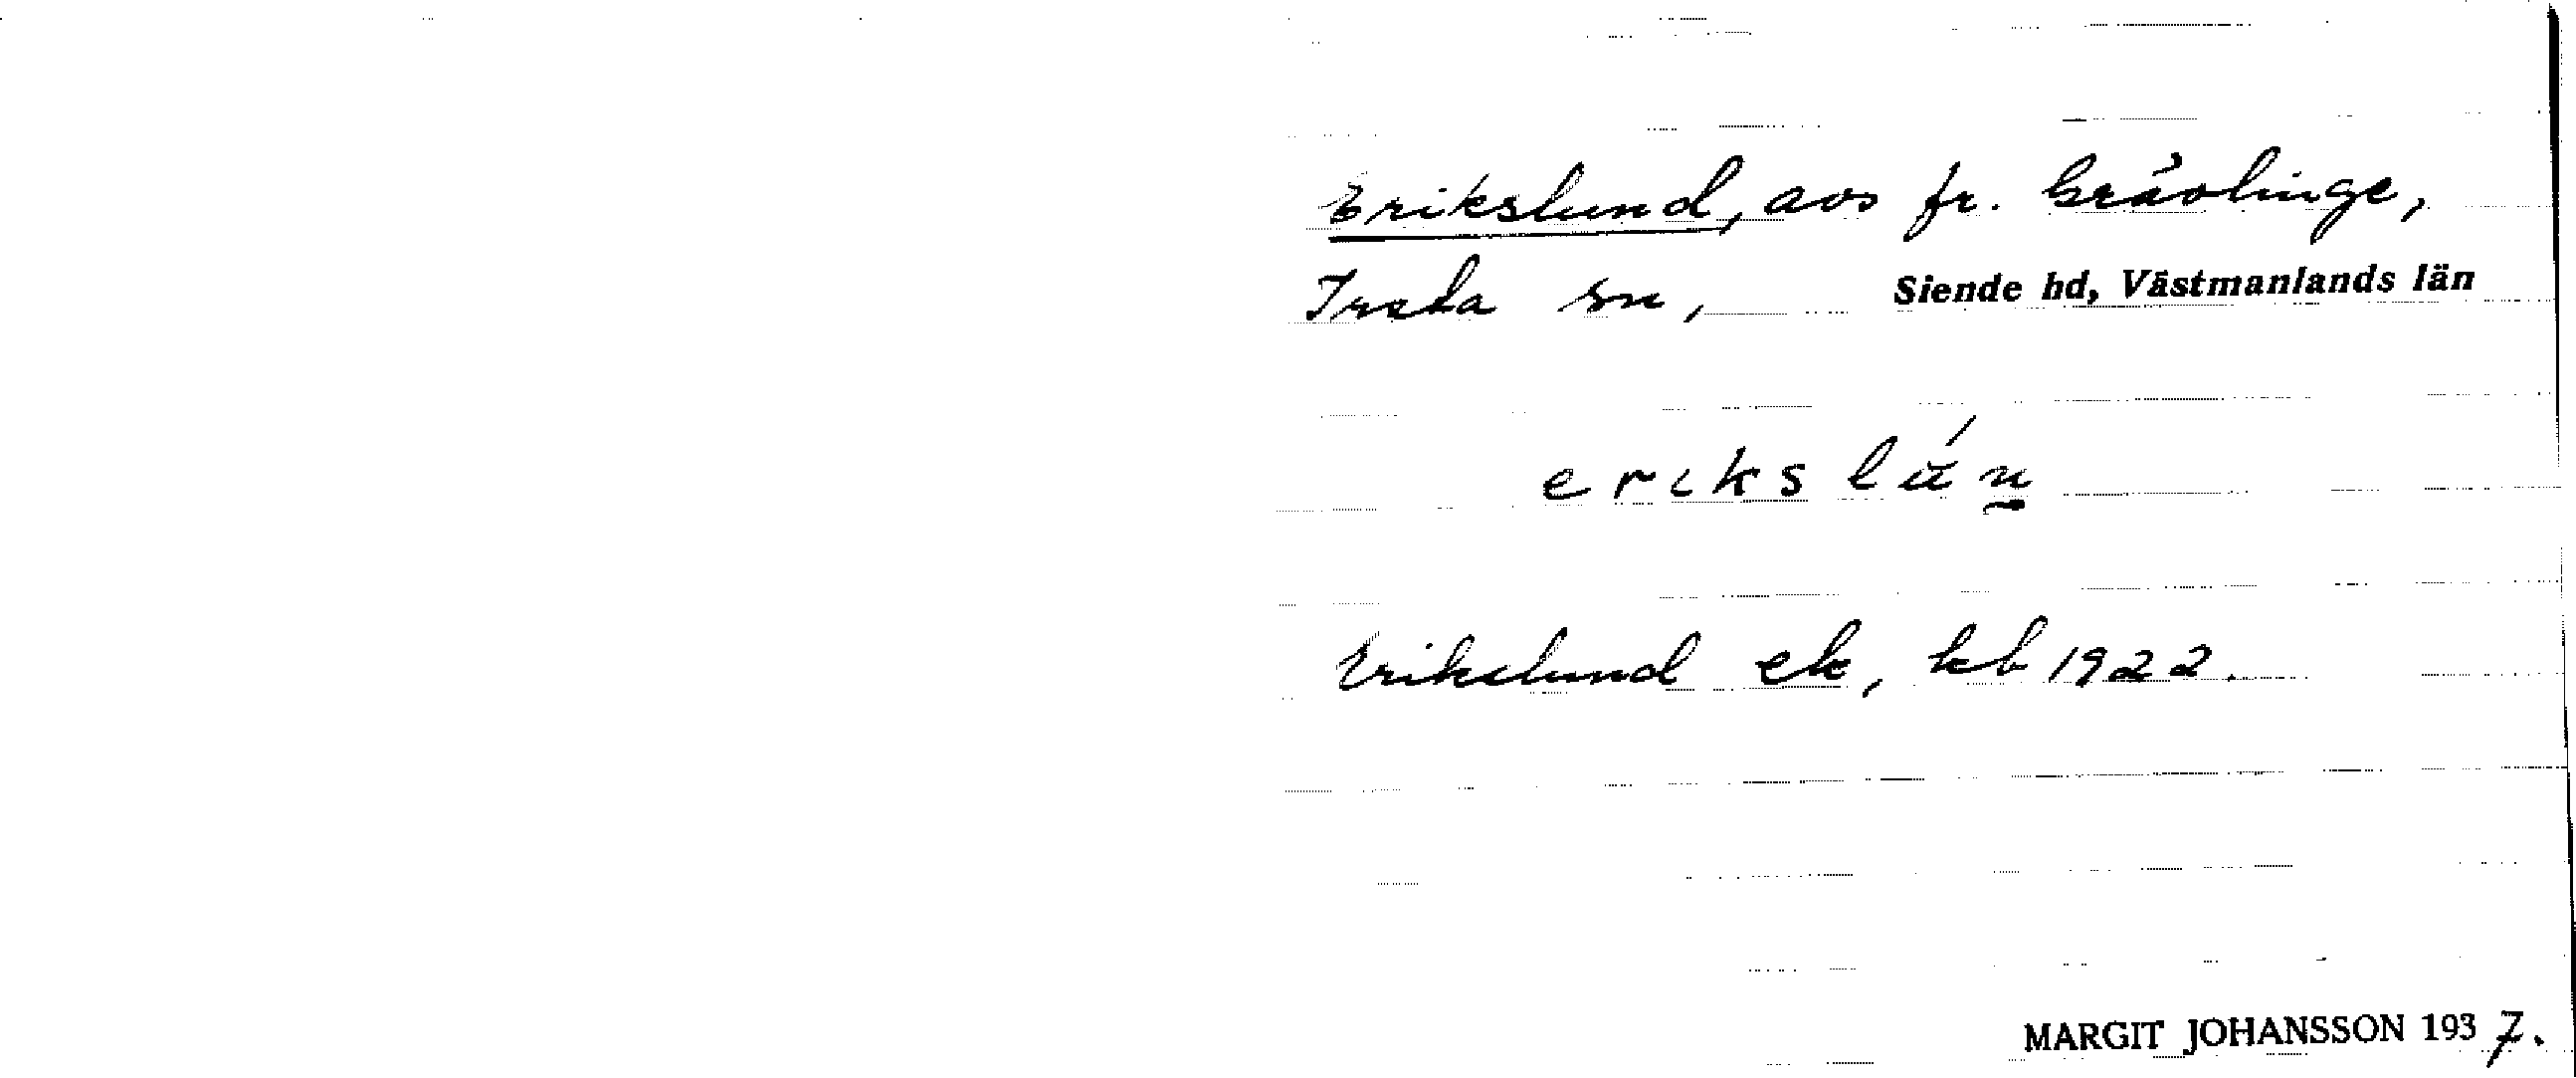 Erikslund, avs fr. Grävlinge,
Irsta sn, Siende hd, Västmanlands län
erikslún̲
Erikslund ek, kb 1922.
MARGIT JOHANSSON 1937.